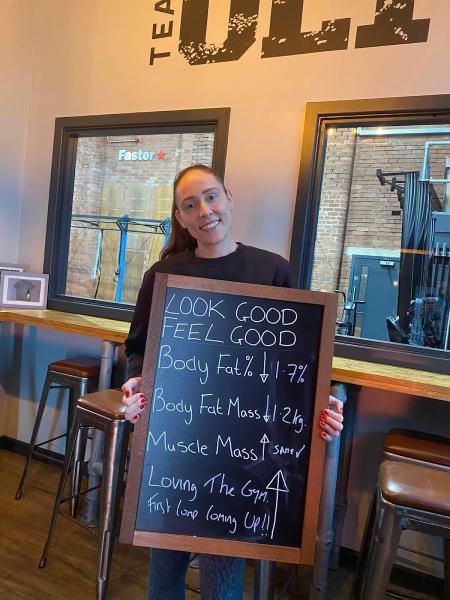 TEAM
Faster★
LOOK GOOD
FEEL GOOD
Body Fat% ↓ 1.7%
Body Fat Mass ↓ 1.2kg.
Muscle Mass ↑ SAME ✓
Loving The Gym. ↑
First Comp Coming Up!!